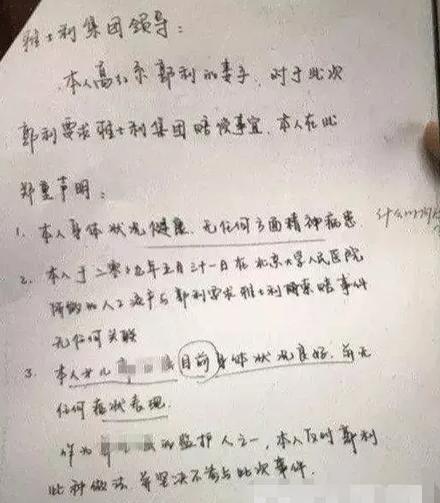 雅士利集团领导：
本人高红系郭利的妻子，对于此次
郭利要求雅士利集团赔偿事宜，本人在此
郑重声明：
1. 本人身体状况健康，无任何方面精神病患
什么时间
2. 本人于二零一九年五月三十一日在北京大学人民医院
所做的人工流产与郭利要求雅士利赔索赔事件
无任何关联
3. 本人女儿 目前身体状况良好，并无
任何症状表现.
作为 的监护人之一，本人反对郭利
此种做法，并坚决不参与此次事件.